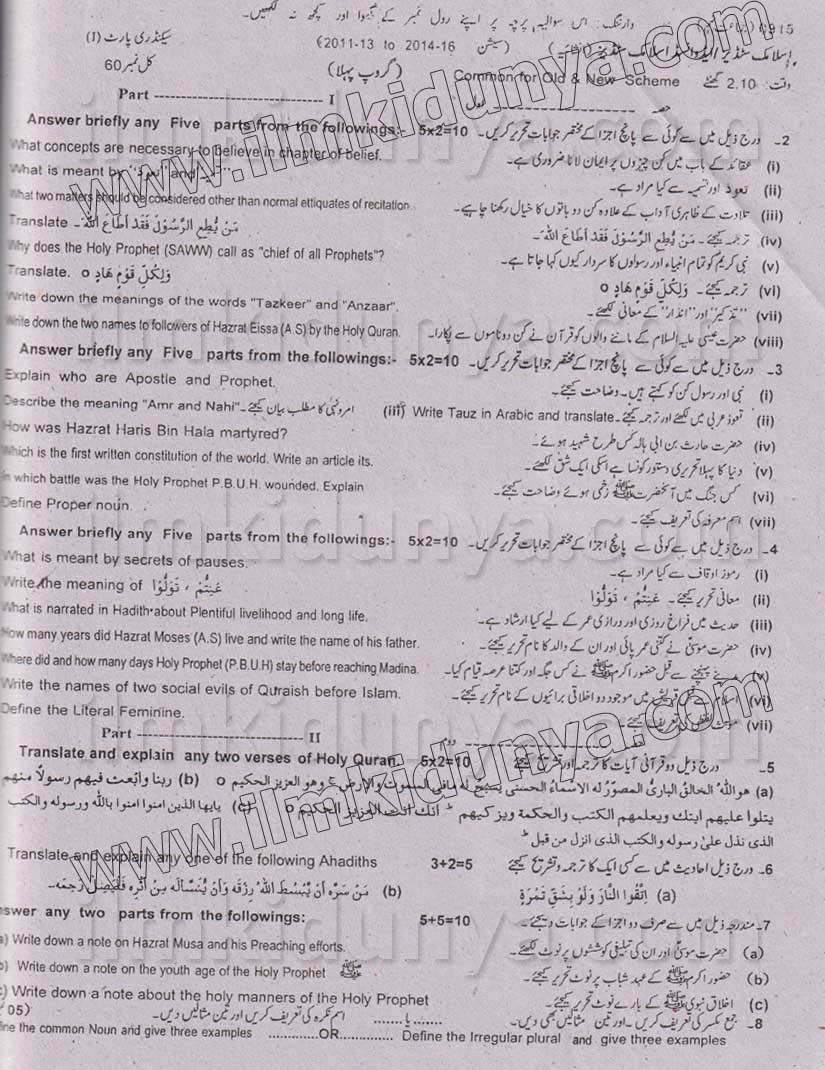 وارننگ: اس سوالیہ پرچہ پر اپنے رول نمبر کے سوا اور کچھ نہ لکھیں۔
سیکنڈری پارٹ (I) (سیشن 2011-13 to 2014-16)
کل نمبر 60 (گروپ پہلا) Common for Old & New Scheme وقت: 2.10 گھنٹے
Part ---------------------- I
Answer briefly any Five parts from the followings:- 5x2=10 2۔ درج ذیل میں سے کوئی سے پانچ اجزا کے مختصر جوابات تحریر کریں۔
What concepts are necessary to believe in chapter of belief. (i) عقائد کے باب میں کن چیزوں پر ایمان لانا ضروری ہے۔
What is meant by "تعوذ" and "تسمیہ" (ii) تعوذ اور تسمیہ سے کیا مراد ہے۔
What two matters should be considered other than normal ettiquates of recitation. (iii) تلاوت کے ظاہری آداب کے علاوہ کن دو باتوں کا خیال رکھنا چاہیے۔
Translate مَنْ يُطِعِ الرَّسُوْلَ فَقَدْ اَطَاعَ اللّٰهَ۔ (iv) ترجمہ کیجئے۔ مَنْ يُطِعِ الرَّسُوْلَ فَقَدْ اَطَاعَ اللّٰهَ۔
Why does the Holy Prophet (SAWW) call as "chief of all Prophets"? (v) نبی کریم کو تمام انبیاء اور رسولوں کا سردار کیوں کہا جاتا ہے۔
Translate. وَلِكُلِّ قَوْمٍ هَادٍ o (vi) ترجمہ کیجئے۔ وَلِكُلِّ قَوْمٍ هَادٍ o
Write down the meanings of the words "Tazkeer" and "Anzaar". (vii) "تذکیر" اور "انذار" کے معانی لکھئے۔
Write down the two names to followers of Hazrat Eissa (A.S) by the Holy Quran. (viii) حضرت عیسیٰ علیہ السلام کے ماننے والوں کو قرآن نے کن دو ناموں سے پکارا۔
Answer briefly any Five parts from the followings:- 5x2=10 3۔ درج ذیل میں سے کوئی سے پانچ اجزا کے مختصر جوابات تحریر کریں۔
Explain who are Apostle and Prophet. (i) نبی اور رسول کن کو کہتے ہیں۔ وضاحت کیجئے۔
Describe the meaning "Amr and Nahi"۔ امر و نہی کا مطلب بیان کیجئے (iii) Write Tauz in Arabic and translate۔ تعوذ عربی میں لکھئے اور ترجمہ کیجئے۔ (ii)
How was Hazrat Haris Bin Hala martyred? (iv) حضرت حارث بن ابی ہالہ کس طرح شہید ہوئے۔
Which is the first written constitution of the world. Write an article its. (v) دنیا کا پہلا تحریری دستور کونسا ہے اسکی ایک شق لکھئے۔
In which battle was the Holy Prophet P.B.U.H. wounded. Explain (vi) کس جنگ میں آنحضرت ﷺ زخمی ہوئے وضاحت کیجئے۔
Define Proper noun. (vii) اسم معرفہ کی تعریف کیجئے۔
Answer briefly any Five parts from the followings:- 5x2=10 4۔ درج ذیل میں سے کوئی سے پانچ اجزا کے مختصر جوابات تحریر کریں۔
What is meant by secrets of pauses. (i) رموز اوقاف سے کیا مراد ہے۔
Write the meaning of عَنِتُّمْ ، تَوَلَّوْا (ii) معانی تحریر کیجئے۔ عَنِتُّمْ ، تَوَلَّوْا
What is narrated in Hadith about Plentiful livelihood and long life. (iii) حدیث میں فراخ روزی اور درازی عمر کے لیے کیا ارشاد ہے۔
How many years did Hazrat Moses (A.S) live and write the name of his father. (iv) حضرت موسیٰ نے کتنی عمر پائی اور ان کے والد کا نام تحریر کیجئے۔
Where did and how many days Holy Prophet (P.B.U.H) stay before reaching Madina. (v) مدینے پہنچنے سے قبل حضور اکرم ﷺ نے کس جگہ اور کتنا عرصہ قیام کیا۔
Write the names of two social evils of Quraish before Islam. (vi) اسلام سے قبل قریش میں موجود دو اخلاقی برائیوں کے نام تحریر کیجئے۔
Define the Literal Feminine. (vii) مونث لفظی کی تعریف کیجئے۔
Part ------------------- II دوم
Translate and explain any two verses of Holy Quran. 5x2=10 5۔ درج ذیل دو قرآنی آیات کا ترجمہ اور تشریح کیجئے
(a) هو الله الخالق البارئ المصور له الاسماء الحسنى يسبح له ما في السموت والارض ج وهو العزيز الحكيم o (b) ربنا وابعث فيهم رسولا منهم
يتلوا عليهم ايتك ويعلمهم الكتب والحكمة ويزكيهم ط انك انت العزيز الحكيم o (c) يايها الذين امنوا امنوا بالله ورسوله والكتب
الذى نذل على رسوله والكتب الذى انزل من قبل ط
Translate and explain any one of the following Ahadiths 3+2=5 6۔ درج ذیل احادیث میں سے کسی ایک کا ترجمہ و تشریح کیجئے
(a) اِتَّقُوا النَّارَ وَلَوْ بِشِقِّ تَمْرَةٍ (b) مَنْ سَرَّهٗ اَنْ يُبْسَطَ اللهُ رِزْقَهٗ وَاَنْ يُنْسَأَلَهٗ مِنْ اَثَرِهٖ فَلْيَصِلْ رَحِمَهٗ۔
nswer any two parts from the followings: 5+5=10 7۔ مندرجہ ذیل میں سے صرف دو اجزا کے جوابات دیجئے۔
a) Write down a note on Hazrat Musa and his Preaching efforts. (a) حضرت موسیٰ اور ان کی تبلیغی کوششوں پر نوٹ لکھئے۔
) Write down a note on the youth age of the Holy Prophet ﷺ (b) حضور اکرم ﷺ کے عہد شباب پر نوٹ تحریر کیجئے۔
) Write down a note about the holy manners of the Holy Prophet (c) اخلاق نبوی ﷺ کے بارے نوٹ تحریر کیجئے۔
05) اسم نکرہ کی تعریف کریں اور تین مثالیں دیں۔ ....... یا ....... 8۔ جمع مکسر کی تعریف کریں۔ اور تین مثالیں بھی دیں۔
ine the common Noun and give three examples ............OR............. Define the Irregular plural and give three examples
www.ilmkidunya.com
www.ilmkidunya.com
ilmkidunya.com
ilmkidunya.com
ilmkidunya.com
ilmkidunya.com